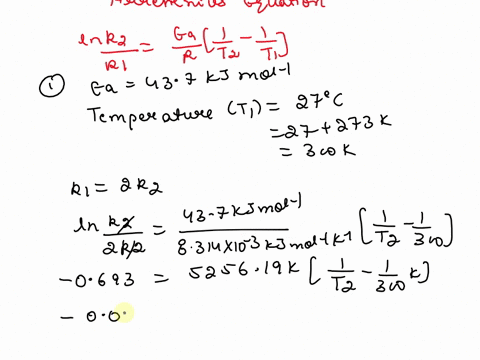 Arrhenius Equation
ln k2/k1 = Ea/R [1/T2 - 1/T1]
① Ea = 43.7 kJ mol-1
Temperature (T1) = 27°C
= 27 + 273 K
= 300 K
k1 = 2k2
ln k2/2k2 = 43.7 kJ mol-1 / 8.314×10-3 kJ mol-1 K-1 [1/T2 - 1/300]
-0.693 = 5256.19 K [1/T2 - 1/300 K]
- 0.0.